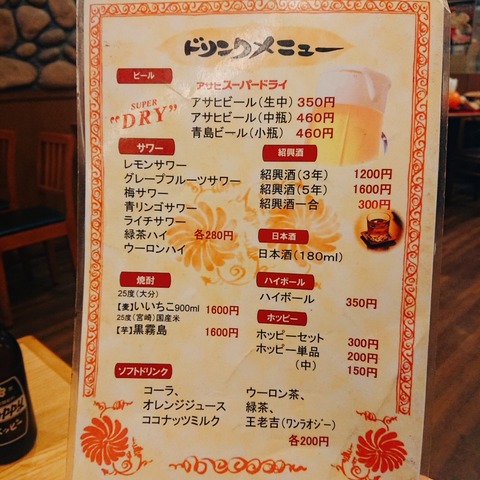 ドリンクメニュー
ビール
アサヒスーパードライ
SUPER
"DRY"
アサヒビール(生中) 350円
アサヒビール(中瓶) 460円
青島ビール(小瓶) 460円
サワー
レモンサワー
グレープフルーツサワー
梅サワー
青リンゴサワー
ライチサワー
緑茶ハイ 各280円
ウーロンハイ
紹興酒
紹興酒(3年) 1200円
紹興酒(5年) 1600円
紹興酒一合 300円
日本酒
日本酒(180ml)
焼酎
25度(大分)
【麦】いいちこ900ml 1600円
25度(宮崎)国産米
【芋】黒霧島 1600円
ハイボール
ハイボール 350円
ホッピー
ホッピーセット 300円
ホッピー単品 200円
(中) 150円
ソフトドリンク
コーラ、
オレンジジュース
ココナッツミルク
ウーロン茶、
緑茶、
王老吉(ワンラオジー)
各200円